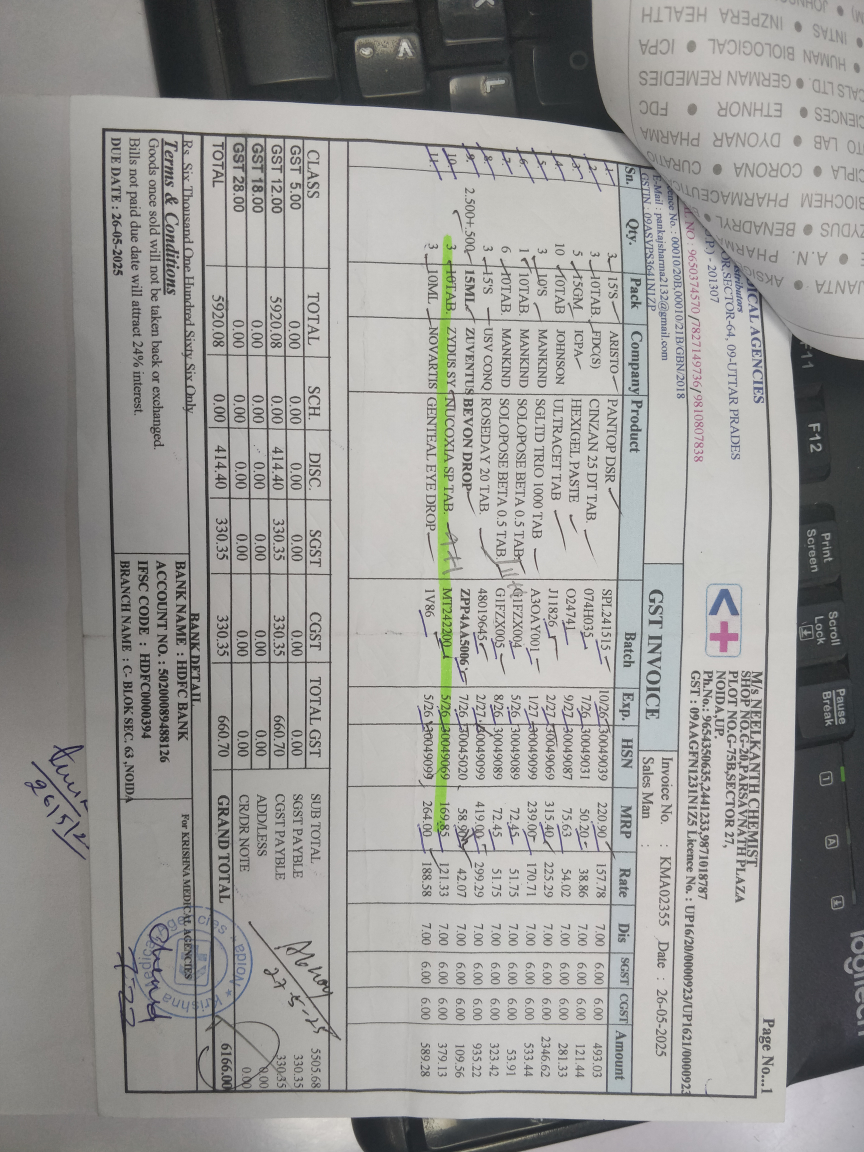 Page No...1
ICAL AGENCIES
OR,SECTOR-64, 09-UTTAR PRADES
P.) - 201307
NO : 9650374570 /7827149736/9810807838
ence No. : 00010/20B,00010/21B/GBN/2018
E-Mail : pankajsharma2132@gmail.com
GSTIN : 09ASVPS3641N1ZP
M/s NEELKANTH CHEMIST
SHOP NO.G-20,PARSAVNATH PLAZA
PLOT NO.G-75B,SECTOR 27,
NOIDA,UP.
Ph.No.: 9654350635,2441233,9871018787
GST : 09AAGFN1231N1Z5 Licence No. : UP16/20/0000923/UP1621/0000923
GST INVOICE
Invoice No. : KMA02355 Date : 26-05-2025
Sales Man :
Sn. Qty. Pack Company Product Batch Exp. HSN MRP Rate Dis SGST CGST Amount
1. 3 15'S ARISTO PANTOP DSR SPL241515 10/26 30049039 220.90 157.78 7.00 6.00 6.00 493.03
2. 3 10TAB. FDC(S) CINZAN 25 DT TAB. 074H035 7/26 30049031 50.20 38.86 7.00 6.00 6.00 121.44
3. 5 15GM ICPA HEXIGEL PASTE O24741 9/27 30049087 75.63 54.02 7.00 6.00 6.00 281.33
4. 10 10TAB JOHNSON ULTRACET TAB J11826 2/27 30049069 315.40 225.29 7.00 6.00 6.00 2346.62
5. 3 10'S MANKIND SGLTD TRIO 1000 TAB A3OAY001 1/27 30049099 239.00 170.71 7.00 6.00 6.00 533.44
6. 1 10TAB. MANKIND SOLOPOSE BETA 0.5 TAB. G1FZX004 5/26 30049089 72.45 51.75 7.00 6.00 6.00 53.91
7. 6 10TAB. MANKIND SOLOPOSE BETA 0.5 TAB. G1FZX005 8/26 30049089 72.45 51.75 7.00 6.00 6.00 323.42
8. 3 15'S USV CONQ ROSEDAY 20 TAB. 48019645 2/27 30049099 419.00 299.29 7.00 6.00 6.00 935.22
9. 2.500+.500 15ML. ZUVENTUS BEVON DROP ZPP4AA5006 7/26 30045020 58.90 42.07 7.00 6.00 6.00 109.56
10. 3 10TAB. ZYDUS SY NUCOXIA SP TAB. MT242200 5/26 30049069 169.85 121.33 7.00 6.00 6.00 379.13
11. 3 10ML NOVARTIS GENTEAL EYE DROP 1V86 5/26 30049099 264.00 188.58 7.00 6.00 6.00 589.28
CLASS TOTAL SCH. DISC. SGST CGST TOTAL GST
GST 5.00 0.00 0.00 0.00 0.00 0.00 0.00
GST 12.00 5920.08 0.00 414.40 330.35 330.35 660.70
GST 18.00 0.00 0.00 0.00 0.00 0.00 0.00
GST 28.00 0.00 0.00 0.00 0.00 0.00 0.00
TOTAL 5920.08 0.00 414.40 330.35 330.35 660.70
SUB TOTAL 5505.68
SGST PAYBLE 330.35
CGST PAYBLE 330.35
ADD/LESS 0.00
CR/DR NOTE 0.00
GRAND TOTAL 6166.00
27-5-25
Rs. Six Thousand One Hundred Sixty Six Only
Terms & Conditions
Goods once sold will not be taken back or exchanged.
Bills not paid due date will attract 24% interest.
DUE DATE : 26-05-2025
BANK DETAIL
BANK NAME : HDFC BANK
ACCOUNT NO. : 50200089488126
IFSC CODE : HDFC0000394
BRANCH NAME : C- BLOK SEC. 63 ,NOIDA
For KRISHNA MEDICAL AGENCIES
Krishna Medical Agencies * Noida *
26/5/2
JOHNSON
INTAS ● INZPERA HEALTH
HUMAN BIOLOGICAL ● ICPA
CALS LTD. ● GERMAN REMEDIES
ENCES ● ETHNOR ● FDC
TO LAB ● DYONAR PHARMA
CIPLA ● CORONA ● CURATIO
BIOCHEM PHARMACEUTIC
ZYDUS ● BENADRYL
● A.N. PHARMA
JANTA ● AKSIO
F11
F12
Print
Screen
Scroll
Lock
Pause
Break
1
A
logitech